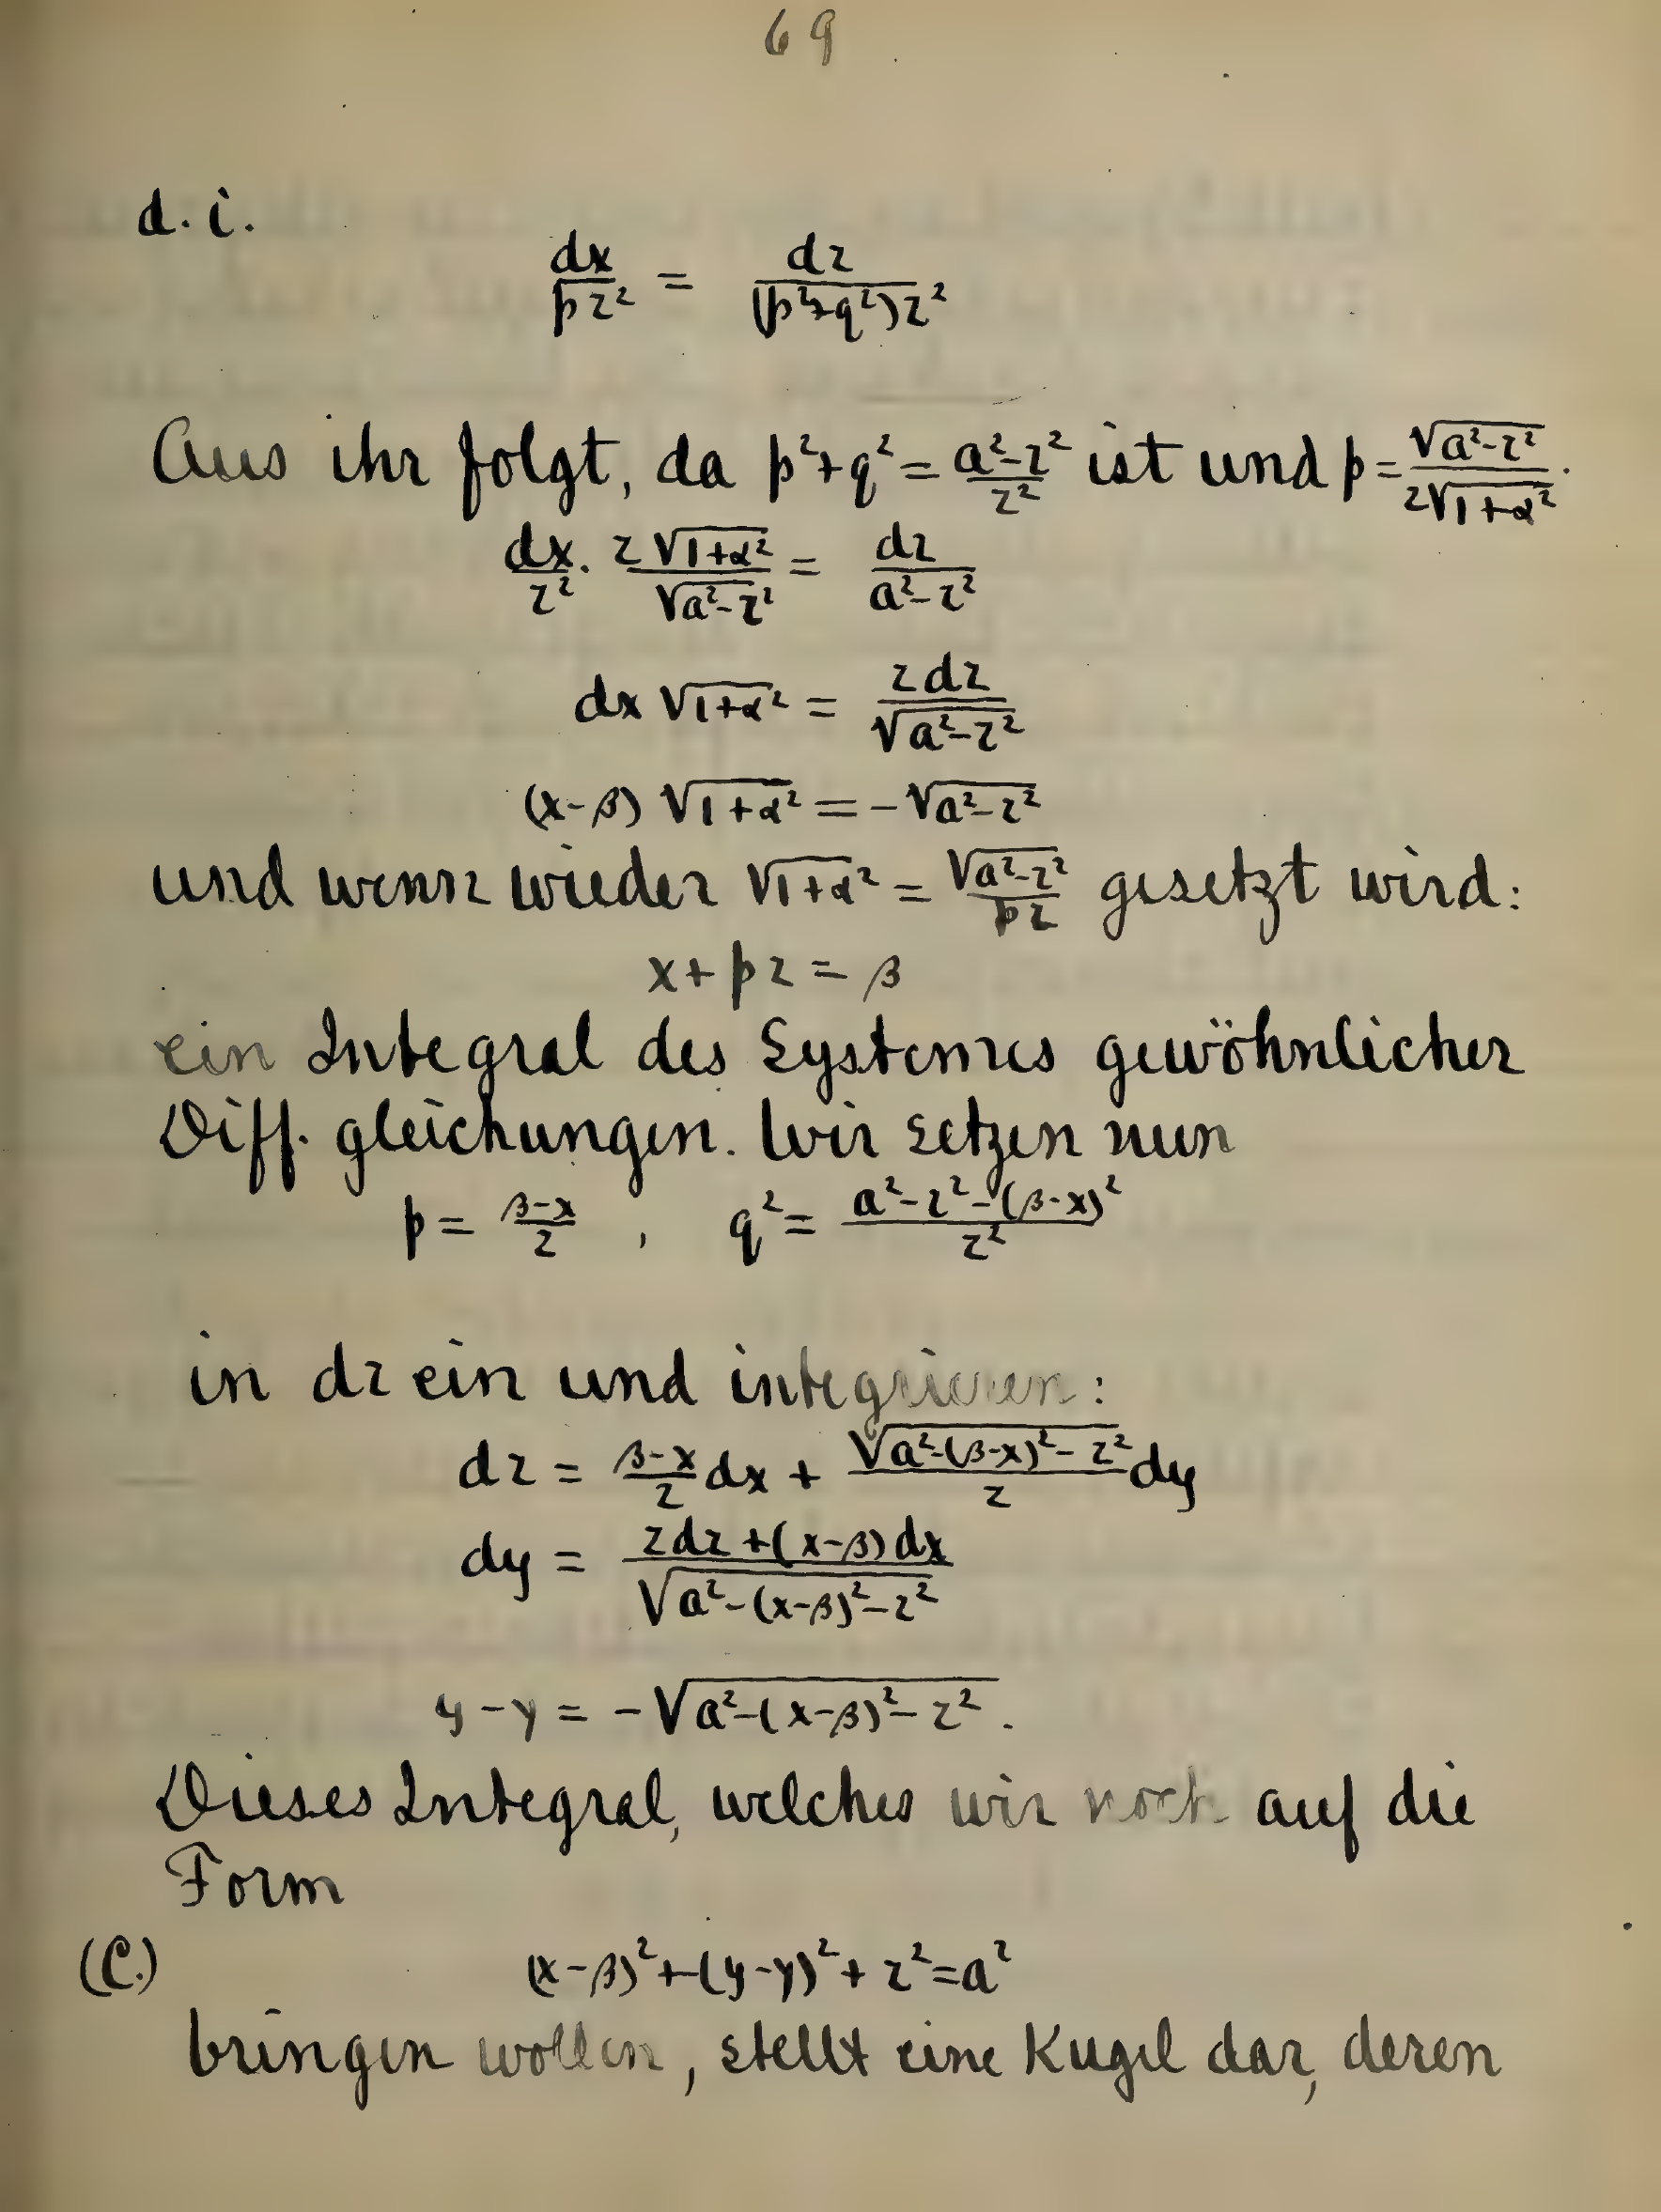 69
d. i.
dx/(pz²) = dz/((p²+q²)z²)
Aus ihr folgt, da p²+q² = (a²-z²)/z² ist und p = √(a²-z²)/(z√(1+α²)).
dx/z² · z√(1+α²)/√(a²-z²) = dz/(a²-z²)
dx √(1+α²) = zdz/√(a²-z²)
(x-β) √(1+α²) = -√(a²-z²)
und wenn wieder √(1+α²) = √(a²-z²)/(pz) gesetzt wird:
x + pz = β
ein Integral des Systemes gewöhnlicher
Diff. gleichungen. Wir setzen nun
p = (β-x)/z , q² = (a²-z²-(β-x)²)/z²
in dz ein und integrieren:
dz = (β-x)/z dx + √(a²-(β-x)²-z²)/z dy
dy = (zdz+(x-β)dx)/√(a²-(x-β)²-z²)
y-γ = -√(a²-(x-β)²-z²).
Dieses Integral, welches wir noch auf die
Form
(C.) (x-β)²+(y-γ)²+z²=a²
bringen wollen, stellt eine Kugel dar, deren